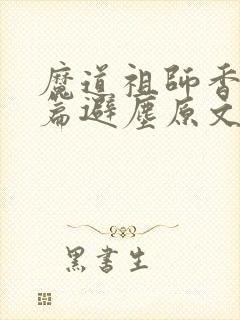 魔道祖師香
篇避塵原文
黑書生